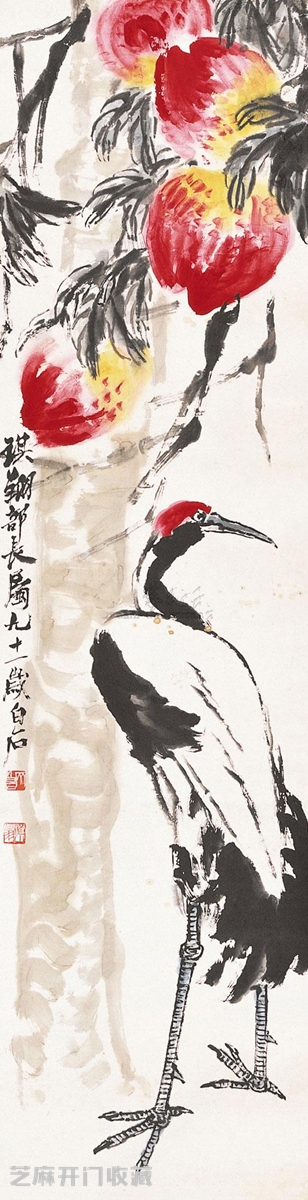 琪翔部長屬九十一歲白石
芝麻开门收藏